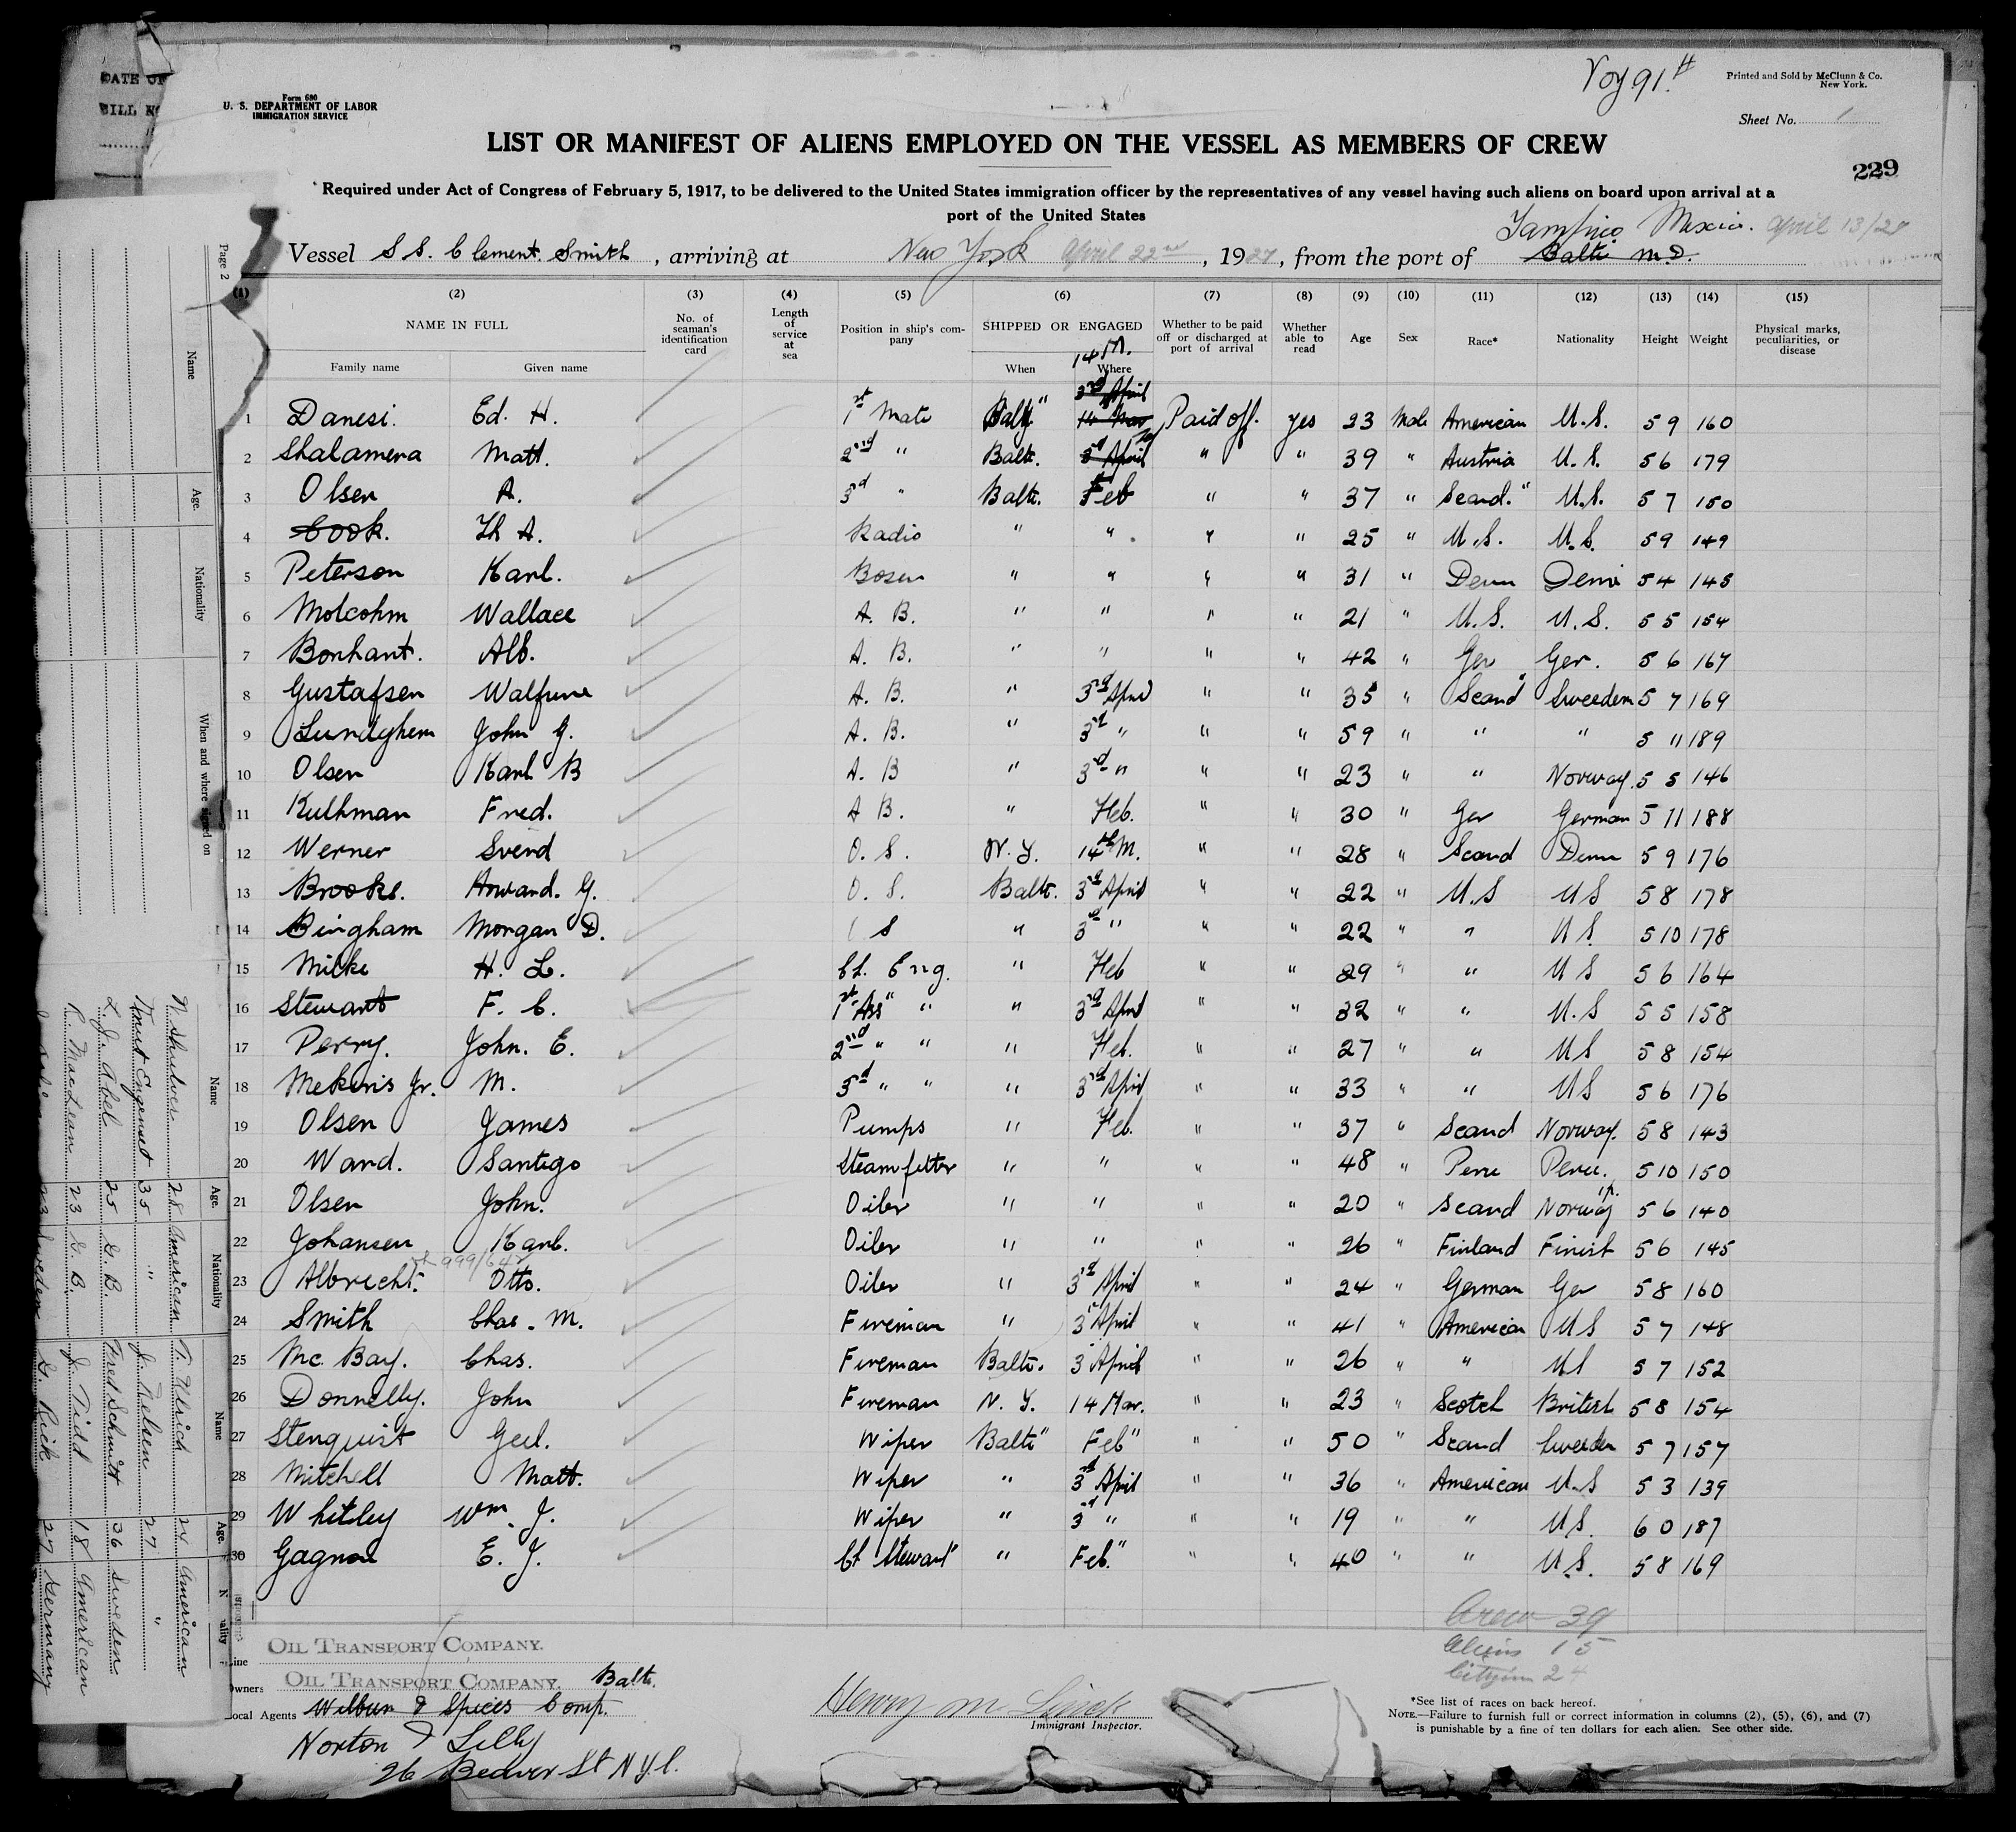 Voy 91.
Printed and Sold by McClunn & Co.
New York.
Form 680
U. S. DEPARTMENT OF LABOR
IMMIGRATION SERVICE
Sheet No. 1
LIST OR MANIFEST OF ALIENS EMPLOYED ON THE VESSEL AS MEMBERS OF CREW
229
Required under Act of Congress of February 5, 1917, to be delivered to the United States immigration officer by the representatives of any vessel having such aliens on board upon arrival at a
port of the United States
Tampico Mexico. April 13/27
Vessel S S. Clement. Smith, arriving at New York April 22nd, 1927, from the port of Balto M.D.
(1) (2) (3) (4) (5) (6) (7) (8) (9) (10) (11) (12) (13) (14) (15)
NAME IN FULL Family name Given name No. of seaman's identification card Length of service at sea Position in ship's company SHIPPED OR ENGAGED When Where Whether to be paid off or discharged at port of arrival Whether able to read Age Sex Race* Nationality Height Weight Physical marks, peculiarities, or disease
14 M.
3rd April
1 Danesi. Ed. H. 1st Mate Balt" 14 Mar Paid off. yes 23 Male American U.S. 5 9 160
2 Shalamera Matt. 2nd " Balt. 3d April " " 39 " Austria U.S. 5 6 179
3 Olsen A. 3d " Balt. Feb " " 37 " Scand." U.S. 5 7 150
4 Cook. Th A. Radio " " " " 25 " U.S. U.S. 5 9 149
5 Peterson Karl. Bosen " " " " 31 " Denm Denm 5 4 145
6 Molcohm Wallace A. B. " " " " 21 " U.S. U.S. 5 5 154
7 Bonhant. Alb. A. B. " " " " 42 " Ger Ger. 5 6 167
8 Gustafsen Walfrine A. B. " 3d April " " 35 " Scand" Sweeden 5 7 169
9 Lundghem John G. A. B. " 3d " " " 59 " " " 5 11 189
10 Olsen Karl B A. B " 3d " " " 23 " " Norway. 5 5 146
11 Kulhman Fred. A B. " Feb. " " 30 " Ger German 5 11 188
12 Werner Svend O. S. N. Y. 14th M. " " 28 " Scand Denm 5 9 176
13 Brooks. Howard. G. O. S. Balt. 3d April " " 22 " U.S US 5 8 178
14 Bingham Morgan D. S " 3d " " " 22 " " US. 5 10 178
15 Milke H. L. Ch. Eng. " Feb " " 29 " " US 5 6 164
16 Stewart F. C. 1st Ass" " " 3d April " " 32 " " U.S 5 5 158
17 Perry. John. E. 2nd " " " Feb. " " 27 " " US 5 8 154
18 Mekins Jr. M. 3d " " " 3d April " " 33 " " US 5 6 176
19 Olsen James Pumps " Feb. " " 37 " Scand Norway. 5 8 143
20 Ward. Santigo Steamfitter " " " " 48 " Peru Peru. 5 10 150
21 Olsen John. Oiler " " " " 20 " Scand Norway 5 6 140
22 Johansen Karl. Oiler " " " " 26 " Finland Finist 5 6 145
23 Albrecht. Otto. Oiler " 3d April " " 24 " German Ger 5 8 160
24 Smith Chas. M. Fireman " 3" April " " 41 " American US 5 7 148
25 Mc. Bay. Chas. Fireman Balto. 3 April " " 26 " " US 5 7 152
26 Donnelly. John Fireman N. Y. 14 Mar. " " 23 " Scotch British 5 8 154
27 Stenquist Geel. Wiper Balto" Feb" " " 50 " Scand Sweden 5 7 157
28 Mitchell Matt. Wiper " 3d April " " 36 " American U.S 5 3 139
29 Whitley Wm. J. Wiper " 3d " " " 19 " " US. 6 0 187
30 Gagnon E. J. Ch Stewart" " Feb." " " 40 " " U.S. 5 8 169
Crew 39
Aliens 15
Citizens 24
Line OIL TRANSPORT COMPANY.
Owners OIL TRANSPORT COMPANY. Balto.
Local Agents Wilbur & Spices Comp.
Norton & Lilly
26 Beaver St N.Y.C.
Henry M
Immigrant Inspector.
*See list of races on back hereof.
NOTE.—Failure to furnish full or correct information in columns (2), (5), (6), and (7)
is punishable by a fine of ten dollars for each alien. See other side.
DATE OF
BILL
Page 2
Name Age. Nationality When and where signed on
Name Age. Nationality Name Age. Nationality
N. Shulver 28 American T. Ulrich 24 American
Knut Engenset 35 " J. Nelsen 27 "
L. J. Abel 25 G. B. Fred Schmitt 36 Sweden
R. MacLean 23 G. B. J. Tidd 18 American
23 Sweden G. Rick 27 Germany